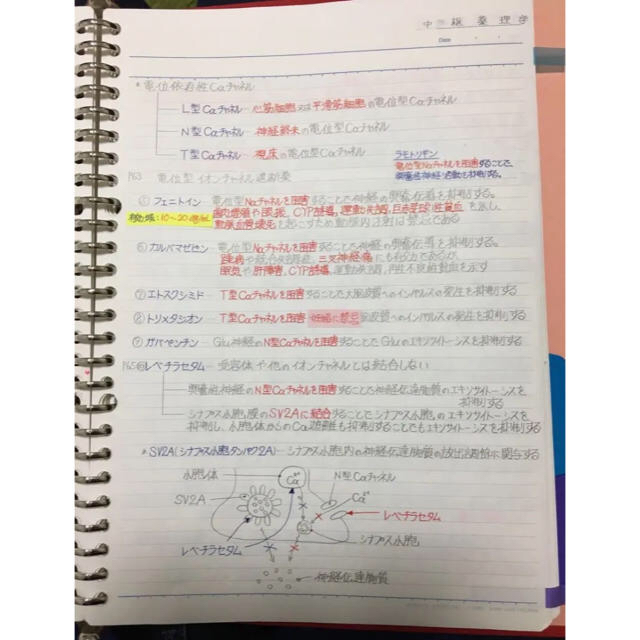 中級 薬理学
Date
*電位依存性Caチャネル
L型Caチャネル…心筋細胞又は平滑筋細胞の電位型Caチャネル
N型Caチャネル…神経終末の電位型Caチャネル
T型Caチャネル…視床の電位型Caチャネル
ラモトリギン
電位型Naチャネルを阻害することで、
興奮性神経の活動を抑制する。
P63 電位型イオンチャネル遮断薬
⑤フェニトイン 電位型Naチャネルを阻害することで神経の興奮伝導を抑制する。
有効域:10~20
歯肉増殖や眼振、CYP誘導、運動失調、巨赤芽球性貧血を示し
動脈血管壊死を起こすため動脈内注射は禁忌である
⑥カルバマゼピン…電位型Naチャネルを阻害することで神経の興奮伝導を抑制する。
躁病や統合失調症、三叉神経痛にも有効であるが、
眠気や肝障害、CYP誘導、運動失調、再生不良性貧血を示す
⑦エトスクシミド…T型Caチャネルを阻害することで大脳皮質へのインパルスの発生を抑制する
⑧トリメタジオン…T型Caチャネルを阻害 妊婦に禁忌 脳皮質へのインパルスの発生を抑制する
⑨ガバペンチン…Glu神経のN型Caチャネルを阻害することでGluのエキソサイトーシスを抑制する
P65⑩レベチラセタム…受容体や他のイオンチャネルとは結合しない
興奮性神経のN型Caチャネルを阻害することで神経伝達物質のエキソサイトーシスを
抑制する
シナプス小胞膜のSV2Aに結合することでシナプス小胞のエキソサイトーシスを
抑制し、小胞体からのCa遊離も抑制することでもエキソサイトーシスを抑制する
*SV2A(シナプス小胞タンパク2A)…シナプス小胞内の神経伝達物質の放出調節に関与する
小胞体
Ca²⁺
N型Caチャネル
SV2A
Ca²⁺
レベチラセタム
レベチラセタム
シナプス小胞
神経伝達物質